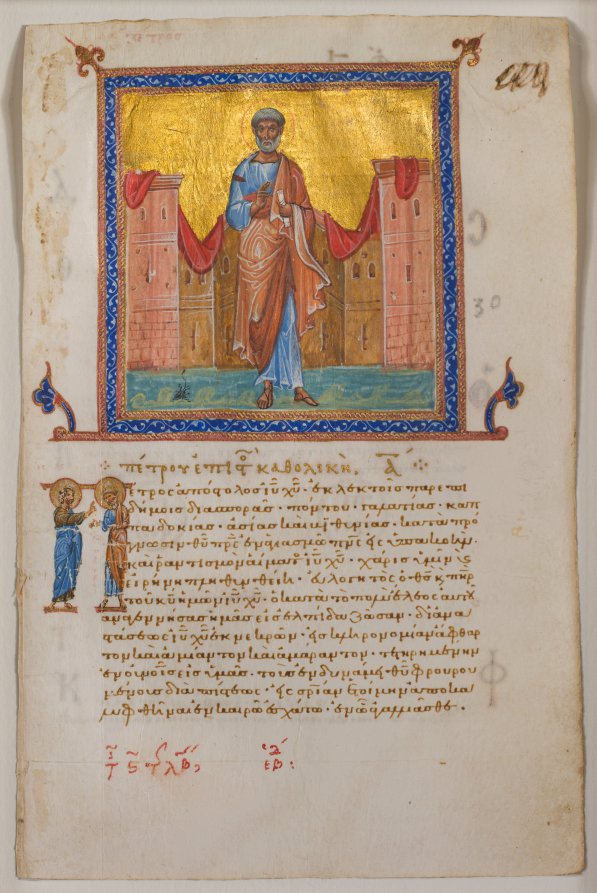 πέτρου ἐπιστολὴ καθολικὴ. ᾱ
Πέτρος ἀπόστολος ἰῦ χῦ. ἐκλεκτοῖς παρεπι
δήμοις διασπορᾶς. πόντου. γαλατίας. καπ
παδοκίας. ἀσίας καὶ βιθυνίας. κατὰ πρό
γνωσιν θῦ πρς ἐν ἁγιασμῶ πνς εἰς ὑπακοὴν.
καὶ ῥαντισμὸν αἵματος ἰῦ χῦ. χάρις ὑμῖν καὶ
εἰρήνη πληθυνθείη. εὐλογητὸς ὁ θς καὶ πηρ
τοῦ κῦ ἡμῶν ἰῦ χῦ. ὁ κατὰ τὸ πολὺ ἔλεος αὐτοῦ
ἀναγεννήσας ἡμᾶς εἰς ἐλπίδα ζῶσαν. δι' ἀνα
στάσεως ἰῦ χῦ ἐκ νεκρῶν. εἰς κληρονομίαν ἄφθαρ
τον καὶ ἀμίαντον καὶ ἀμάραντον. τετηρημένην
ἐν οὐνοῖς εἰς ὑμᾶς. τοὺς ἐν δυνάμει θῦ φρουρου
μένους διὰ πίστεως. εἰς σρίαν ἑτοίμην ἀποκα
λυφθῆναι ἐν καιρῶ ἐσχάτω. ἐν ὧ ἀγαλλιᾶσθε.